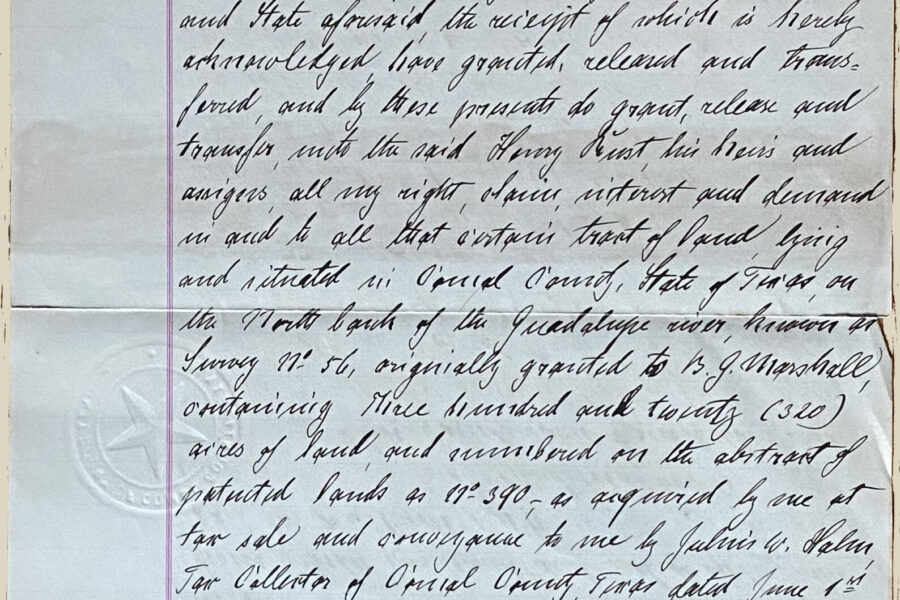 and State aforesaid, the receipt of which is hereby
acknowledged, have granted, released and trans=
ferred, and by these presents do grant, release and
transfer, unto the said Henry Rust, his heirs and
assigns, all my right, claim, interest and demand
in and to all that certain tract of land, lying
and situated in Comal County, State of Texas, on
the North bank of the Guadalupe river, known as
Survey No 56, originally granted to B. J. Marshall,
containing Three hundred and twenty (320)
acres of land, and numbered on the abstract of
patented lands as No 390,- as acquired by me at
tax sale and conveyance to me by Julius W. Halm,
Tax Collector of Comal County, Texas dated June 1st